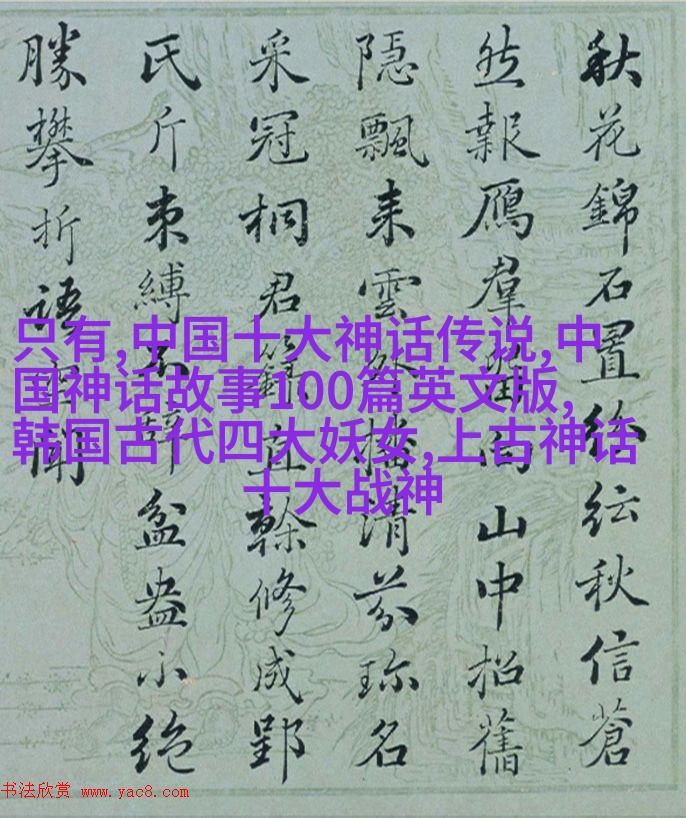 秋花錦石置紛紜秋信蒼
然報鴈羣向山中招舊
隱飄来雲外播清芬珎名
采冠桐君籙直幹修成郢
氏斤束縛不辭盆盎小絶
勝攀折語聞
只有,中国十大神话传说,中
国神话故事100篇英文版,
韩国古代四大妖女,上古神话
十大战神
书法欣赏 www.yac8.com